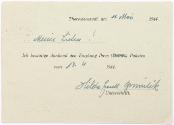 Theresienstadt, am 16. Mai 1944.
Meine Lieben!
Ich bestätige dankend den Empfang Ihres (Deines) Paketes
vom 18. 4. 1944.
Unterschrift.